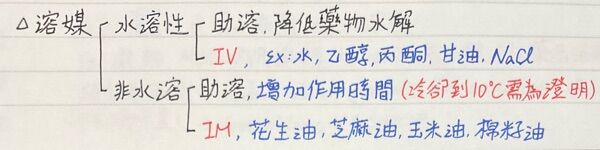 △溶媒 水溶性 助溶.降低藥物水解
IV, ex:水,乙醇,丙酮,甘油,NaCl
非水溶 助溶,增加作用時間(冷卻到10℃需為澄明)
IM, 花生油,芝麻油,玉米油,棉籽油